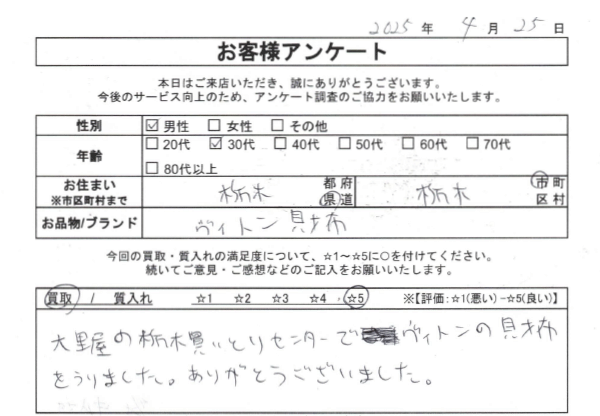 2025 年 4 月 25 日
お客様アンケート
本日はご来店いただき、誠にありがとうございます。
今後のサービス向上のため、アンケート調査のご協力をお願いいたします。
性別 ☑ 男性 ☐ 女性 ☐ その他
年齢 ☐ 20代 ☑ 30代 ☐ 40代 ☐ 50代 ☐ 60代 ☐ 70代
☐ 80代以上
お住まい 栃木 都 府 栃木 市 町
※市区町村まで 県 道 区 村
お品物/ブランド ヴィトン 財布
今回の買取・質入れの満足度について、☆1～☆5に○を付けてください。
続いてご意見・ご感想などのご記入をお願いいたします。
買取 / 質入れ ☆1 ☆2 ☆3 ☆4 ☆5 ※【評価:☆1(悪い)−☆5(良い)】
大黒屋の栃木買いとりセンターでヴィトンの財布
をうりました。ありがとうございました。